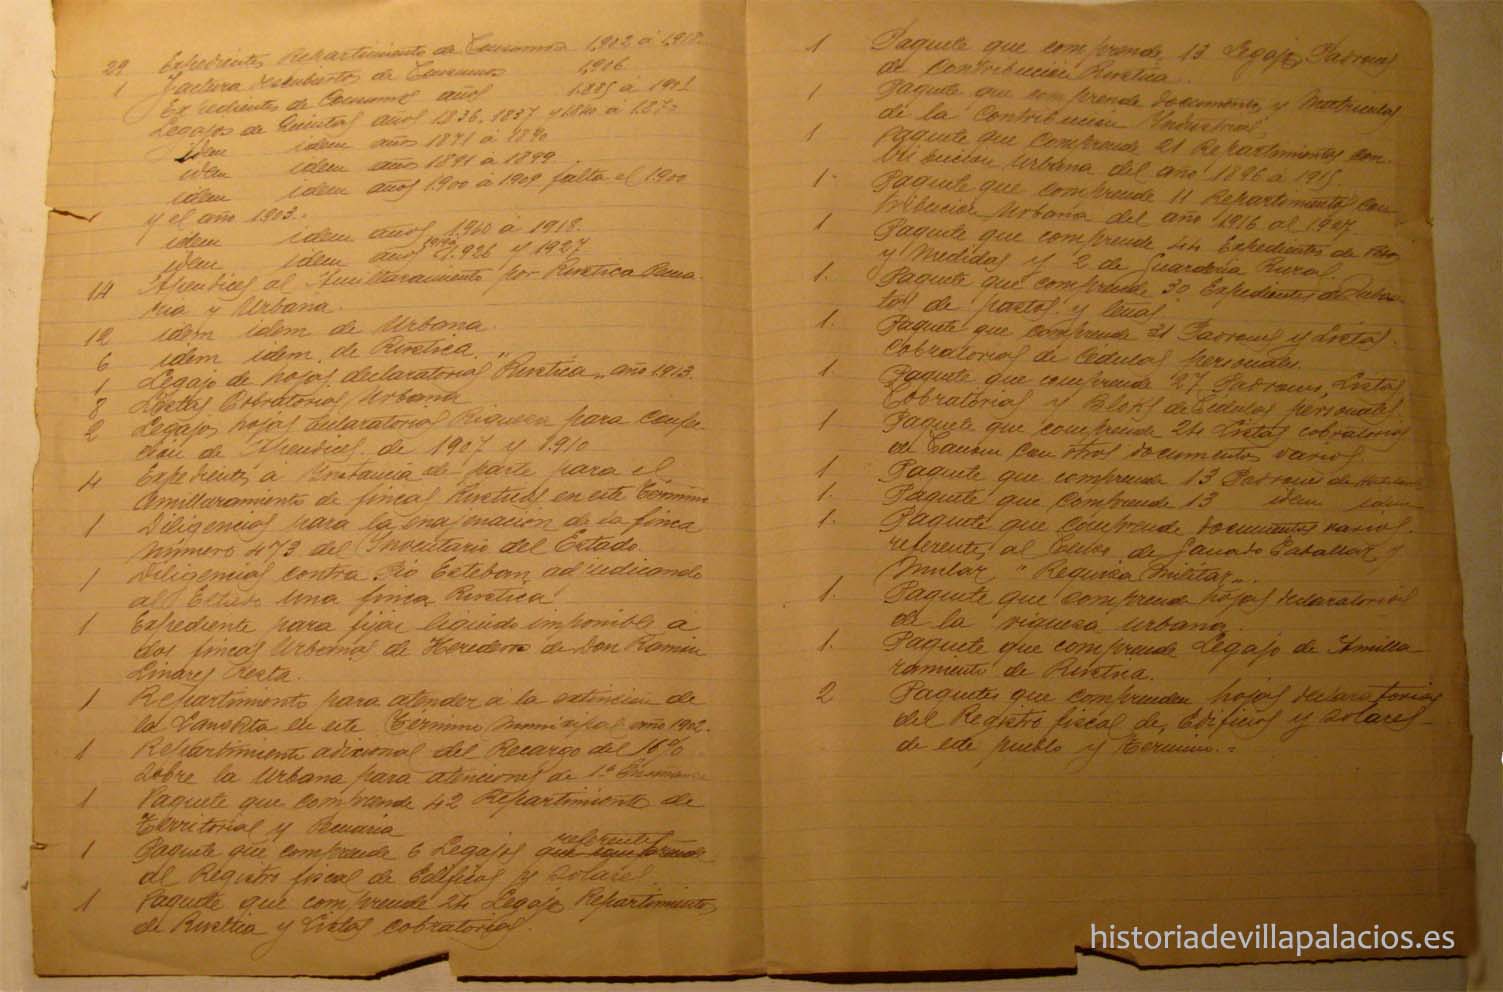 29 Expedientes Repartimiento de Consumos 1,902 á 1,918.
1 Factura descubiertos de Consumos 1,906
Expedientes de Consumos años 1.885 á 1901
Legajos de Quintas años 1836, 1837 y 1840 á 1870
idem idem años 1871 á 1890
idem idem años 1891 á 1899
idem idem años 1.900 á 1909 falta el 1900
y el año 1.903.
idem idem años 1,910 á 1918.
idem idem años 1.926 y 1927
14 Apendices al Amillaramiento por Rústica Pecua-
ria y Urbana.
12 idem idem de Urbana.
6 idem idem de Rústica.
1 Legajo de hojas declaratorias "Rústica" año 1.913.
8 Listas Cobratorias Urbana
2 Legajos hojas declaratorias Riqueza para confec-
ción de Apendices de 1907 y 1.910
4 Expedientes á Instancia de parte para el
Amillaramiento de fincas Rústicas en este Término
1 Diligencias para la enajenación de la finca
número 473 del Inventario del Estado.
1 Diligencias contra Pio Esteban adjudicando
al Estado una finca Rústica
1 Expediente para fijar liquido imponible a
dos fincas Urbanas de Herederos de Don Ramón
Linares
1 Repartimiento para atender á la extinción de
la Langosta en este Término Municipal año 1902.
1 Repartimiento adicional del Recargo del 16%
sobre la Urbana para atenciones de 1ª Enseñanza
1 Paquete que comprende 42 Repartimientos de
Territorial y Pecuaria
1 Paquete que comprende 6 Legajos referentes
al Registro fiscal de Edificios y Solares.
1 Paquete que comprende 24 Legajos Repartimientos
de Rústica y Listas cobratorias.
1 Paquete que comprende 13 Legajos Padrones
de Contribución Rústica.
1 Paquete que comprende documentos y Matriculas
de la Contribución Industrial
1 Paquete que comprende 21 Repartimientos con-
tribución Urbana del año 1896 á 1915
1. Paquete que comprende 11 Repartimientos con-
tribución Urbana del año 1916 al 1927
1 Paquete que comprende 44 Expedientes de Peso
y Medidas y 2 de Guarderia Rural.
1. Paquete que comprende 30 Expedientes de Subas-
tas de pastos y leñas.
1. Paquete que comprende 31 Padrones y Listas
Cobratorias de Cedulas personales.
1 Paquete que comprende 27 Padrones, Listas
Cobratorias y Bloks de Cédulas personales.
1 Paquete que comprende 24 Listas cobratorias
de Canon con otros documentos varios
1 Paquete que comprende 13 Padrones de
1. Paquete que comprende 13 idem idem
1. Paquete que comprende documentos varios
referentes al Censo de Ganado Caballar y
Mular "Requisa Militar".
1. Paquete que comprende hojas declaratorias
de la riqueza urbana.
1. Paquete que comprende Legajo de Amilla-
ramiento de Rústica.
2 Paquetes que comprenden hojas declaratorias
del Registro fiscal de Edificios y Solares
de este pueblo y Termino.=
historiadevillapalacios.es